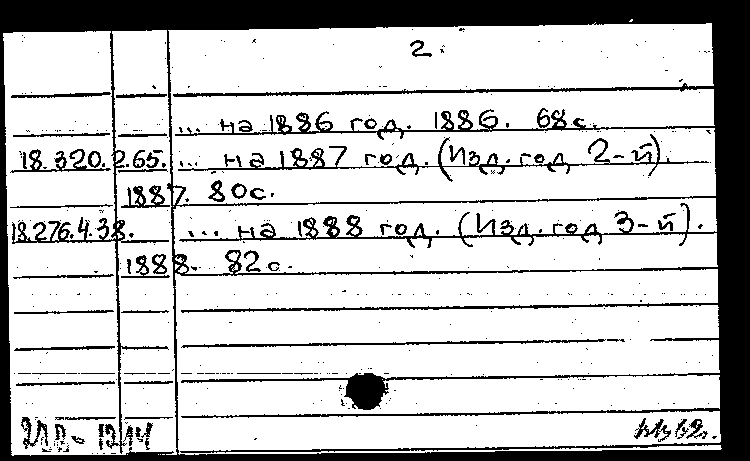 2.
... на 1886 год. 1886. 68с.
18.320.2.65. ... на 1887 год. (Изд. год 2-й).
1887. 80с.
18.276.4.38. ... на 1888 год. (Изд. год 3-й).
1888. 82с.